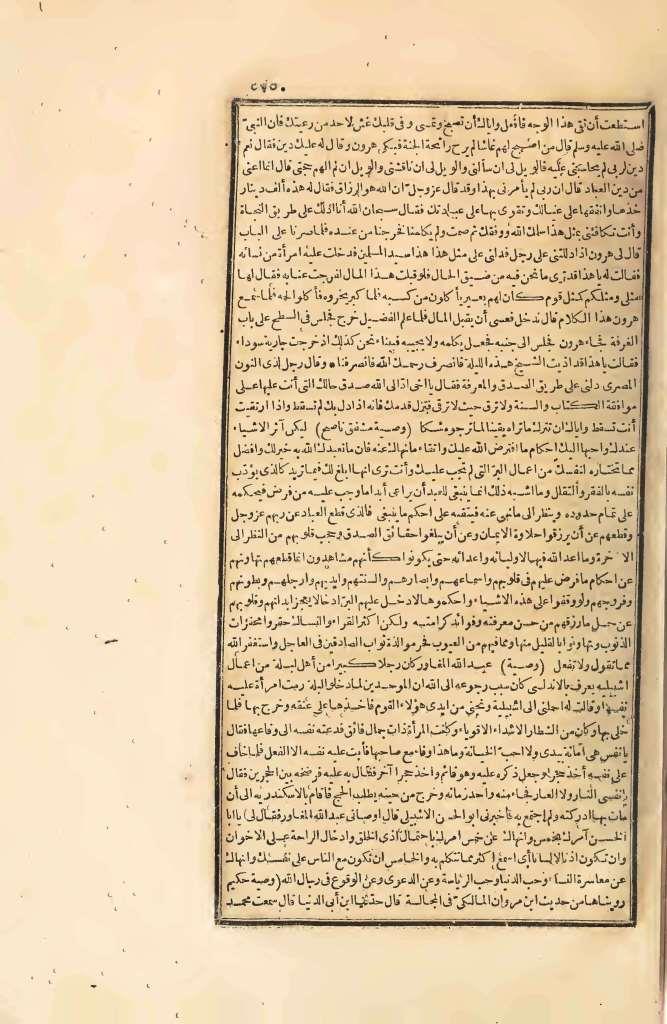 ٤٧٥٠
استطعت أن تقى هذا الوجه فافعل واياك أن تصبح وتمسى وفى قلبك غش لاحد من رعيتك فان النبى
صلى الله عليه وسلم قال من أصبح لهم غاشا لم يرح رائحة الجنة فبكى هرون وقال له عليك دين فقال نعم
دين لربى لم يحاسبنى عليه فالويل لى ان سألنى والويل لى ان ناقشنى والويل ان لم ألهم حجتى قال انما أعنى
من دين العباد قال ان ربى لم يأمرنى بهذا وقد قال عز وجل ان الله هو الرزاق فقال له هذه ألف دينار
خذها وانفقها على عيالك وتقوى بها على عبادتك فقال سبحان الله أنا أدلك على طريق النجاة
وأنت تكافئنى بمثل هذا سلمك الله ووفقك ثم صمت ولم يكلمنا فخرجنا من عنده فلما صرنا على الباب
قال لى هرون اذا دللتنى على رجل فدلنى على مثل هذا هذا سيد المسلمين فدخلت عليه امرأة من نسائه
فقالت له يا هذا قد ترى ما نحن فيه من ضيق الحال فلو قبلت هذا المال لفرجت عنا به فقال لها
مثلى ومثلكم كمثل قوم كان لهم بعير يأكلون من كسبه فلما كبر نحروه فأكلوا لحمه فلما سمع
هرون هذا الكلام قال ندخل فعسى أن يقبل المال فلما علم الفضيل خرج فجلس فى السطح على باب
الغرفة فجاء هرون فجلس الى جنبه فجعل يكلمه ولا يجيبه فبينا نحن كذلك اذ خرجت جارية سوداء
فقالت يا هذا قد آذيت الشيخ هذه الليلة فانصرف رحمك الله فانصرفنا * وقال رجل لذى النون
المصرى دلنى على طريق الصدق والمعرفة فقال يا أخى أد الى الله صدق حالتك التى أنت عليها على
موافقة الكتاب والسنة ولا ترق حيث لا ترقى فتزل قدمك فانه اذا دل بك لم تسقط واذا ارتقيت
أنت تسقط واياك أن تترك ما تراه يقينا لما ترجوه شكا (وصية مشفق ناصح) ليكن آثر الاشياء
عندك وأحبها اليك احكام ما افترض الله عليك واتقاء ما نهاك عنه فان ما تعبدك الله به خير لك وأفضل
مما تختاره لنفسك من أعمال البر التى لم تجب عليك وأنت ترى انها ابلغ لك فيما تريد كالذى يؤدب
نفسه بالفقر والتقال وما أشبه ذلك انما ينبغى للعبد أن يراعى أبدا ما وجب عليه من فرض فيحكمه
على تمام حدوده وينظر الى ما نهى عنه فيتقيه على احكم ما ينبغى فالذى قطع العباد عن ربهم عز وجل
وقطعهم عن أن يرزقوا حلاوة الايمان وعن أن يبلغوا حقائق الصدق وحجب قلوبهم من النظر الى
الآخرة وما أعد الله فيها لاوليائه واعدائه حتى يكونوا كأنهم مشاهدون انما قطعهم تهاونهم
عن احكام ما فرض عليهم فى قلوبهم واسماعهم وابصارهم والسنتهم وايديهم وارجلهم وبطونهم
وفروجهم ولو وقفوا على هذه الاشياء واحكموها لادخل عليهم البر ادخالا يعجز ابدانهم وقلوبهم
عن حمل ما رزقهم من حسن معرفته وفوائد كرامته ولكن اكثر القراء والنساك حقروا محقرات
الذنوب وتهاونوا بالقليل منها ومما فيهم من العيوب فحرموا لذة ثواب الصادقين فى العاجل واستغفر الله
مما نقول ولا نفعل (وصية) عبد الله المغاور كان رجلا كبيرا من أهل لبلة من اعمال
اشبيلية يعرف بالاندلسى كان سبب رجوعه الى الله ان الموحدين لما دخلوا لبلة رمت امرأة عليه
نفسها وقالت له احملنى الى اشبيلية ونجنى من ايدى هؤلاء القوم فأخذها على عنقه وخرج بها فلما
خلى بها وكان من الشطار الاشداء الاقوياء وكانت المرأة ذات جمال فائق فدعته نفسه الى وقاعها فقال
يا نفس هى أمانة بيدى ولا احب الخيانة وما هذا وفاء مع صاحبها فأبت عليه نفسه الا الفعل فلما خاف
على نفسه أخذ حجرا وجعل ذكره عليه وهو قائم واخذ حجرا آخر فقال به عليه فرضخه بين الحجرين فقال
يا نفسى النار ولا العار فجاء منه واحد زمانه وخرج من حينه يطلب الحج فأقام بالاسكندرية الى أن
مات بها أدركته ولم أجتمع به فأخبرنى ابو الحسن الاشبيلى قال أوصانى عبد الله المغاور فقال لى يا أبا
الحسن آمرك بخمس وانهاك عن خمس امرك باحتمال أذى الخلق وادخال الراحة على الاخوان
وان تكون اذنا لا لسانا أى اسمع اكثر مما تتكلم به والخامس ان تكون مع الناس على نفسك وانهاك
عن معاشرة النساء وحب الدنيا وحب الرياسة وعن الدعوى وعن الوقوع فى رجال الله (وصية حكيم
رويناها من حديث ابن مروان المالكى فى المجالسة قال حدثنا ابن أبى الدنيا قال سمعت محمد